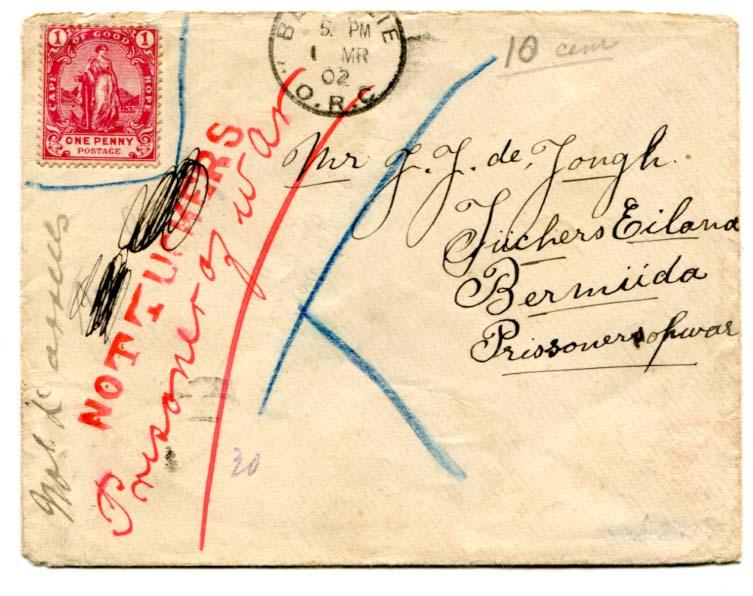 1 CAPE OF GOOD HOPE 1
ONE PENNY
POSTAGE
5 PM
1 MR
02
O.R.C.
10 cem
Mr J. J. de Jongh.
Tuchers Eiland
Bermuida
Prissonersofwar
NOT TUCKERS
Prisoner of war
Not Darrells
30